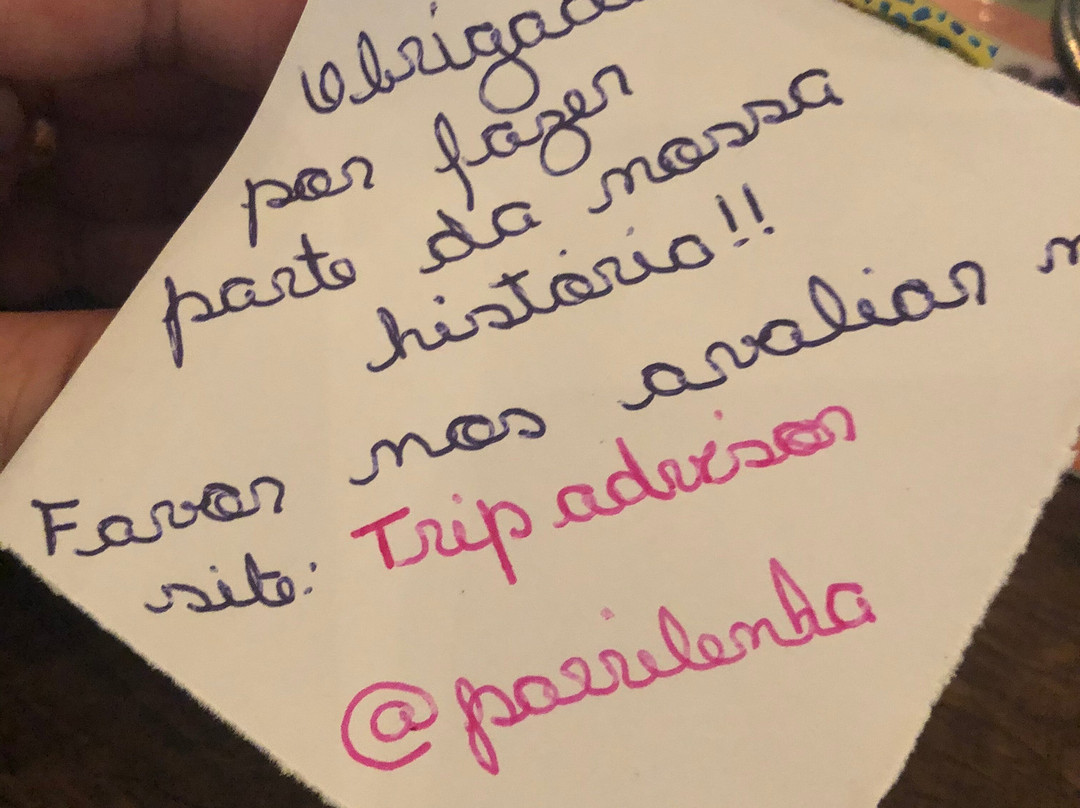 Obrigad
por fazer
parte da nossa
história!!
Favor nos avaliar n
site: Trip advisor
@parrilenha